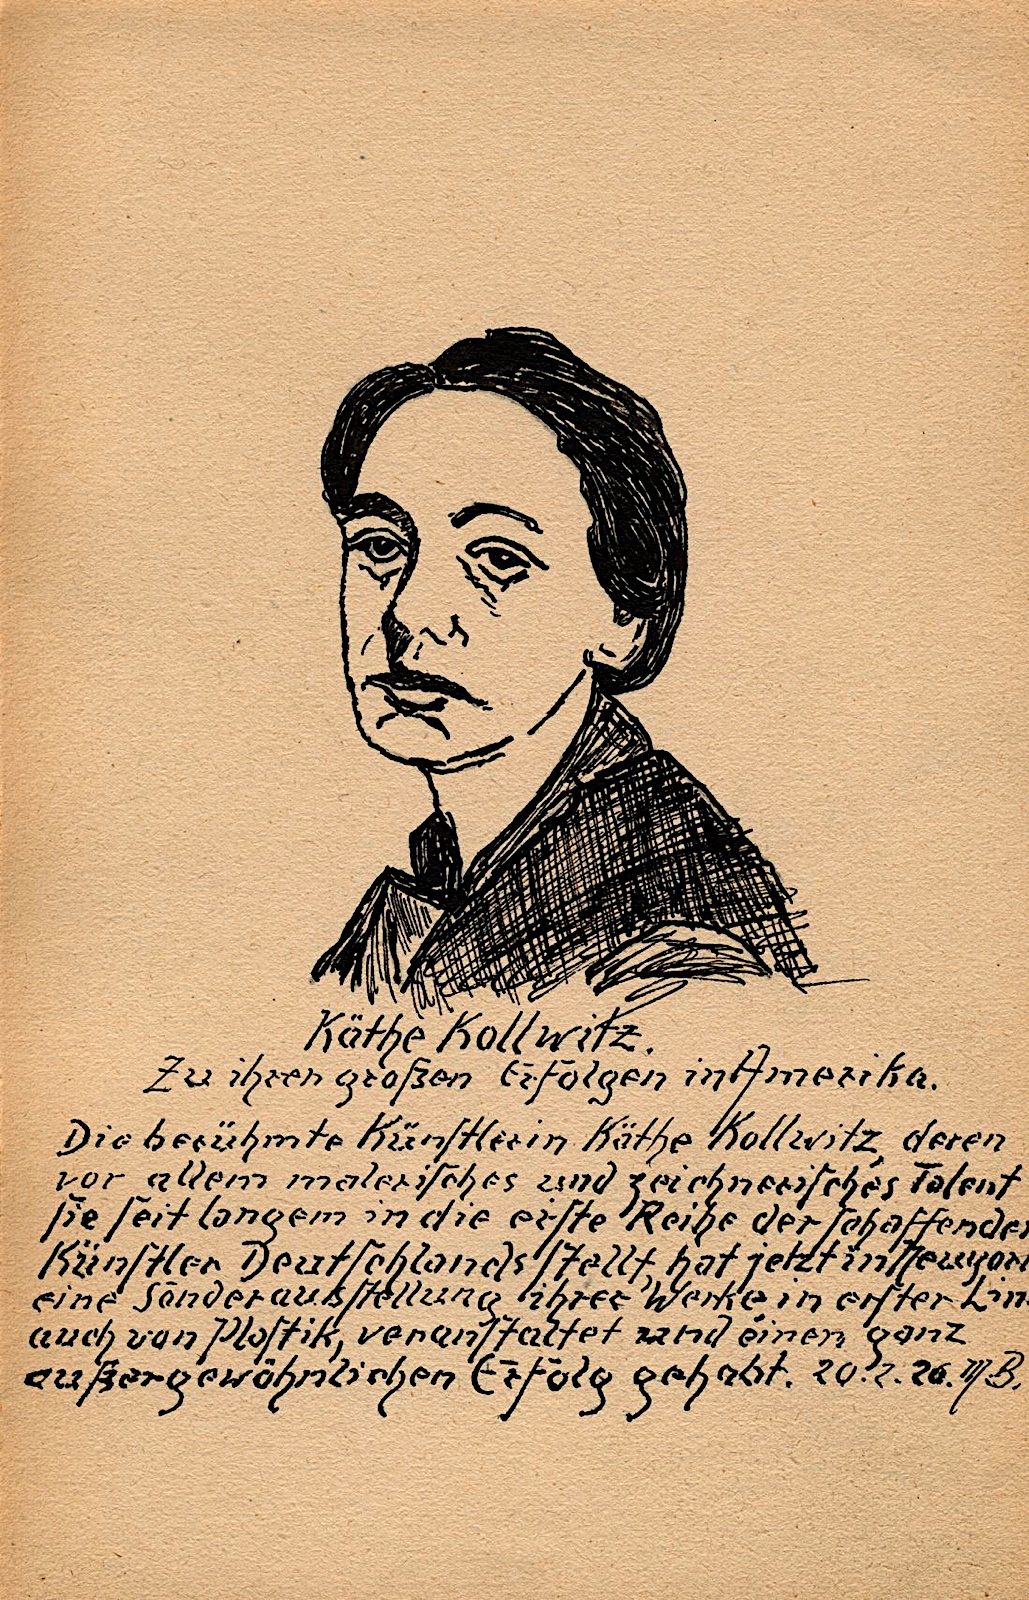 Käthe Kollwitz.
Zu ihren großen Erfolgen in Amerika.
Die berühmte Künſtlerin Käthe Kollwitz, deren
vor allem maleriſches und zeichneriſches Talent
ſie ſeit langem in die erſte Reihe der ſchaffenden
Künſtler Deutſchlands ſtellt, hat jetzt in Newyor
eine Sonderausſtellung ihrer Werke in erſter Lin
auch von Plaſtik, veranſtaltet und einen ganz
außergewöhnlichen Erfolg gehabt. 20.2.26. M.B.